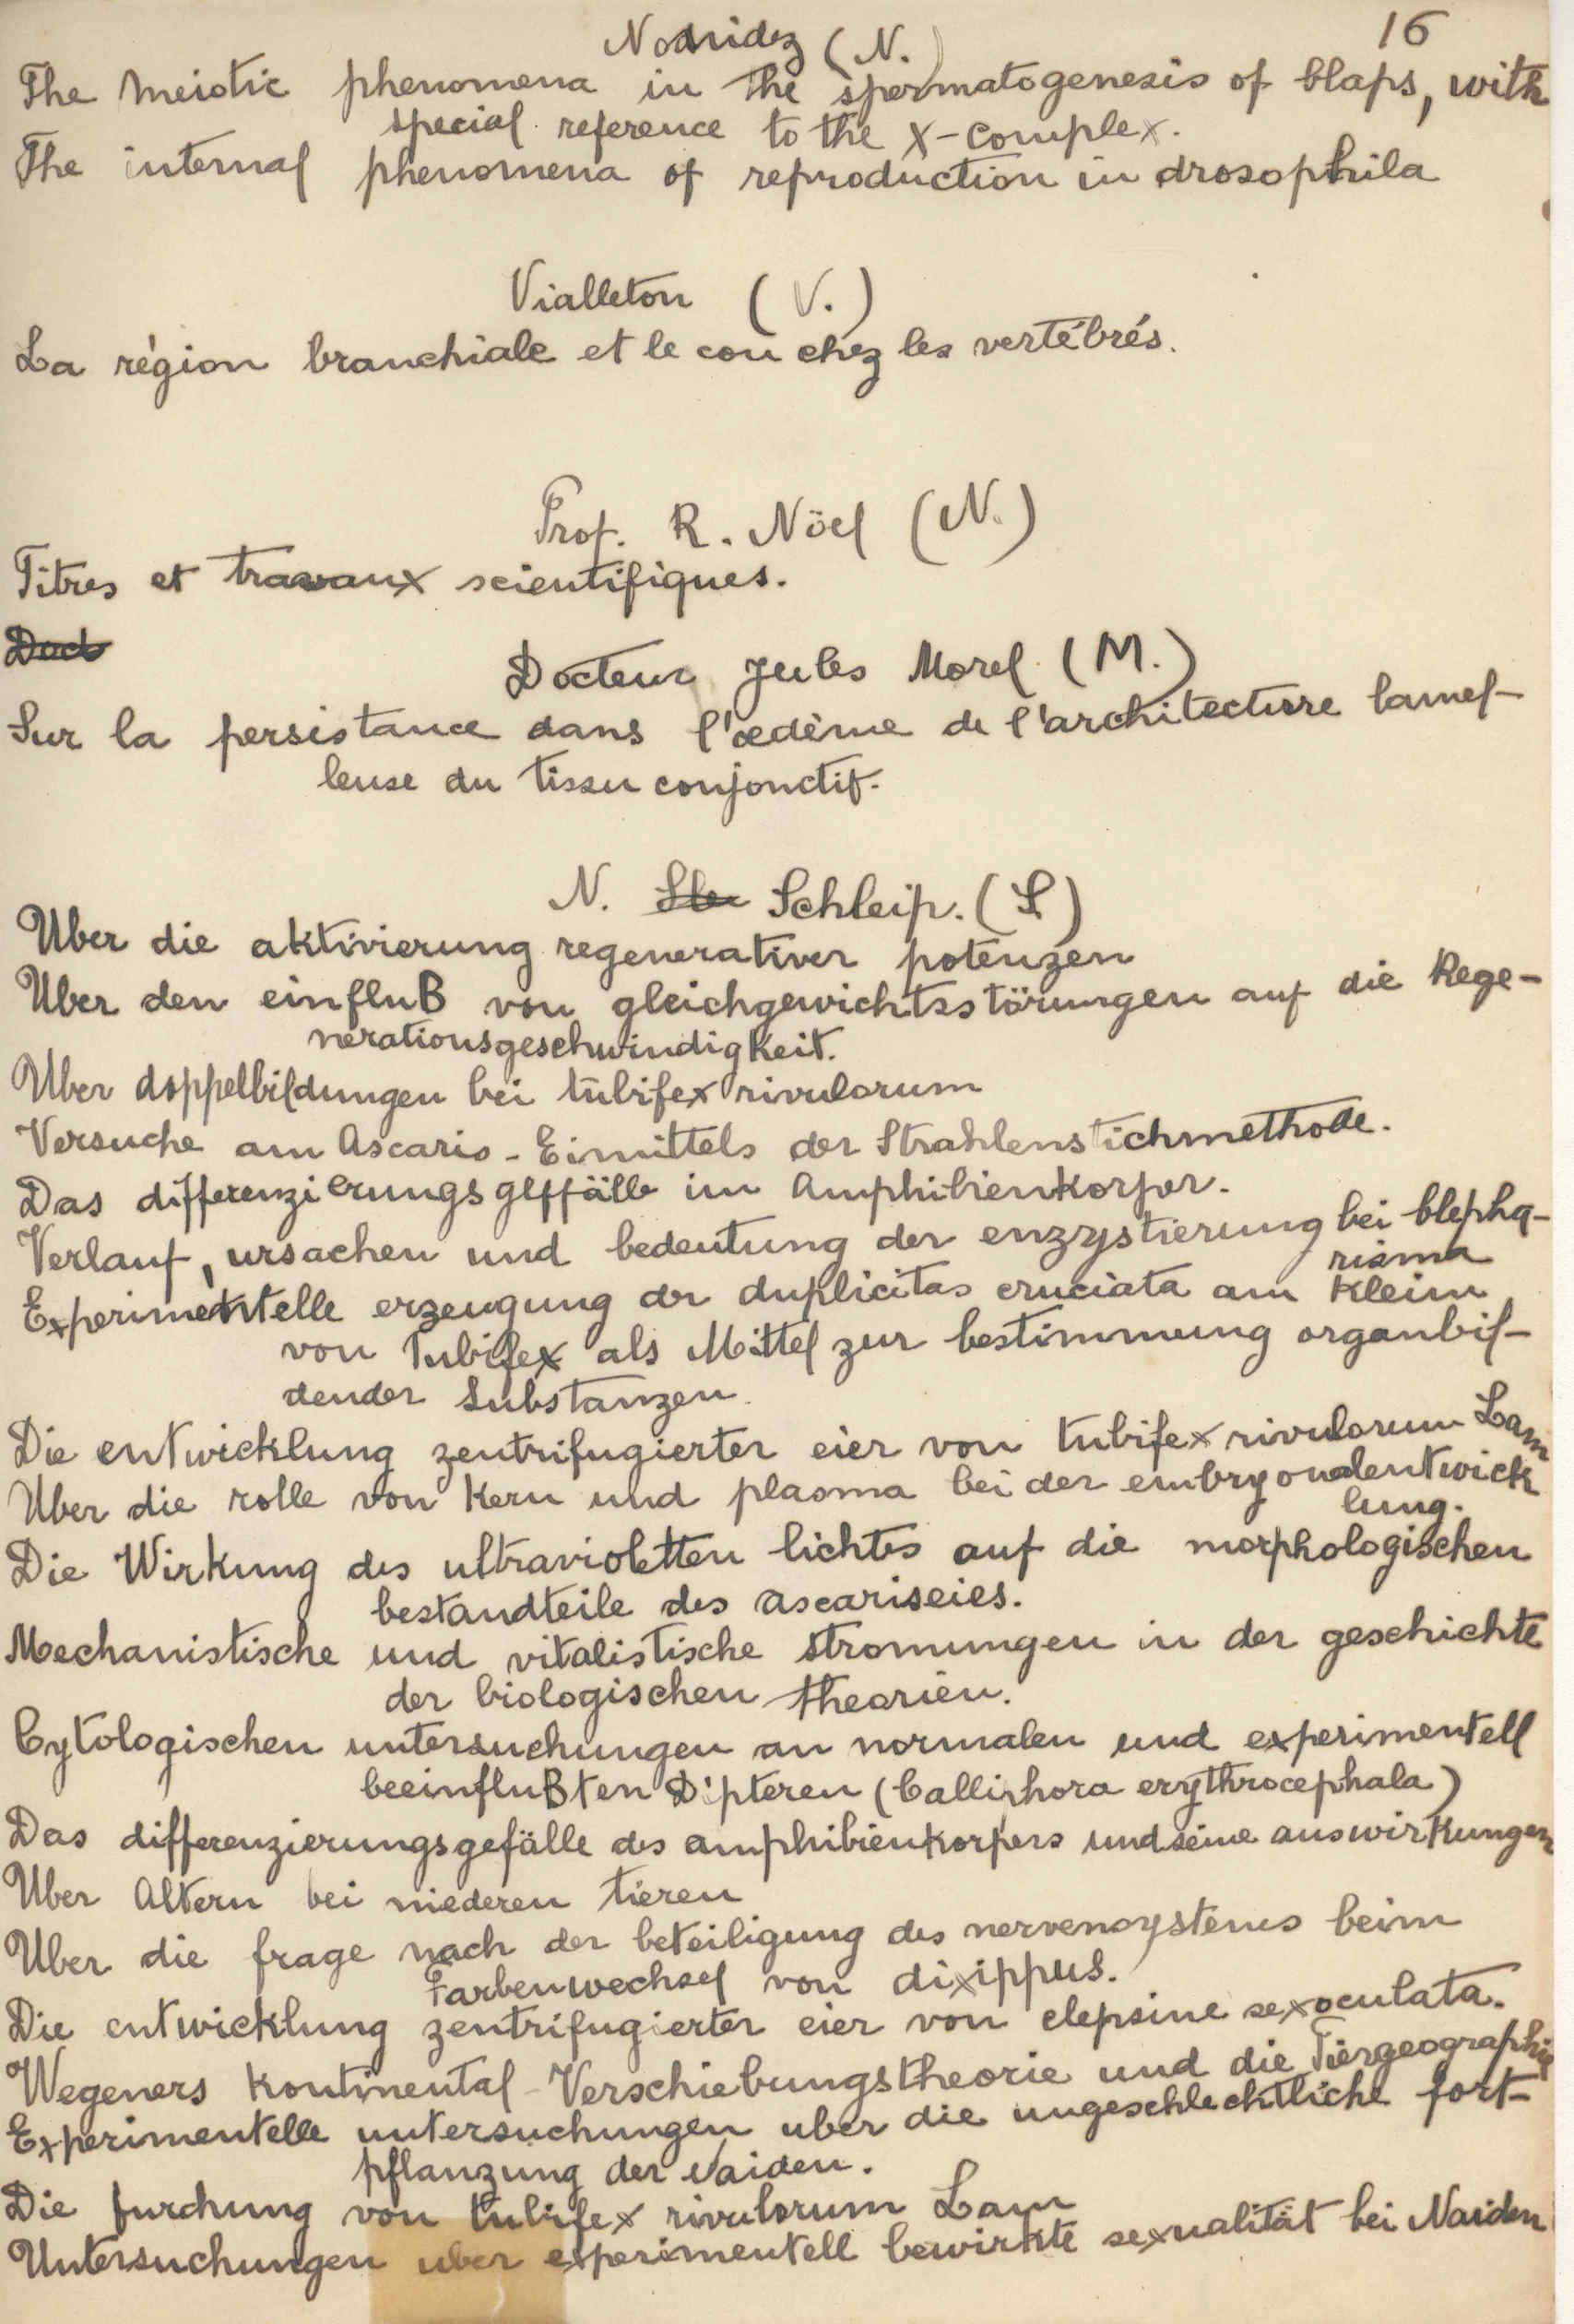 16
Nonidez (N.)
The meiotic phenomena in the spermatogenesis of blaps, with
special reference to the X-complex.
The internal phenomena of reproduction in drosophila
Vialleton (V.)
La région branchiale et le cou chez les vertébrés.
Prof. R. Nöel (N.)
Titres et travaux scientifiques.
Doct
Docteur Jules Morel (M.)
Sur la persistance dans l'œdème de l'architecture lamel-
leuse du tissu conjonctif.
N. Schleip. (S)
Uber die aktivierung regenerativer potenzen
Uber den einfluß von gleichgewichtsstörungen auf die Rege-
nerationsgeschwindigkeit.
Uber doppelbildungen bei tubifex rivulorum
Versuche am Ascaris-Eimittels der Strahlenstichmethode.
Das differenzierungsgeffälle im Amphibienkorper.
Verlauf, ursachen und bedeutung der enzystierung bei blepha-
risma
Experimentelle erzeugung der duplicitas cruciata am Kleim
von Tubifex als Mittel zur bestimmung organbil-
dender Substanzen.
Die entwicklung zentrifugierter eier von tubifex rivulorum Lam
Uber die rolle von Kern und plasma bei der embryonalentwick
lung.
Die Wirkung des ultravioletten lichtes auf die morphologischen
bestandteile des ascariseies.
Mechanistische und vitalistische stromungen in der geschichte
der biologischen theorien.
Cytologischen untersuchungen an normalen und experimentell
beeinflußten Dipteren (Calliphora erythrocephala)
Das differenzierungsgefälle des amphibienkorpers und seine auswirkungen
Uber Altern bei niederen tieren
Uber die frage nach der beteiligung des nervensystems beim
Farbenwechsel von dixippus.
Die entwicklung zentrifugierter eier von clepsine sexoculata.
Wegeners Kontinental-Verschiebungstheorie und die Tiergeographie
Experimentelle untersuchungen uber die ungeschlechtliche fort-
pflanzung der Naiden.
Die furchung von tubifex rivulorum Lam
Untersuchungen uber experimentell bewirkte sexualität bei Naiden